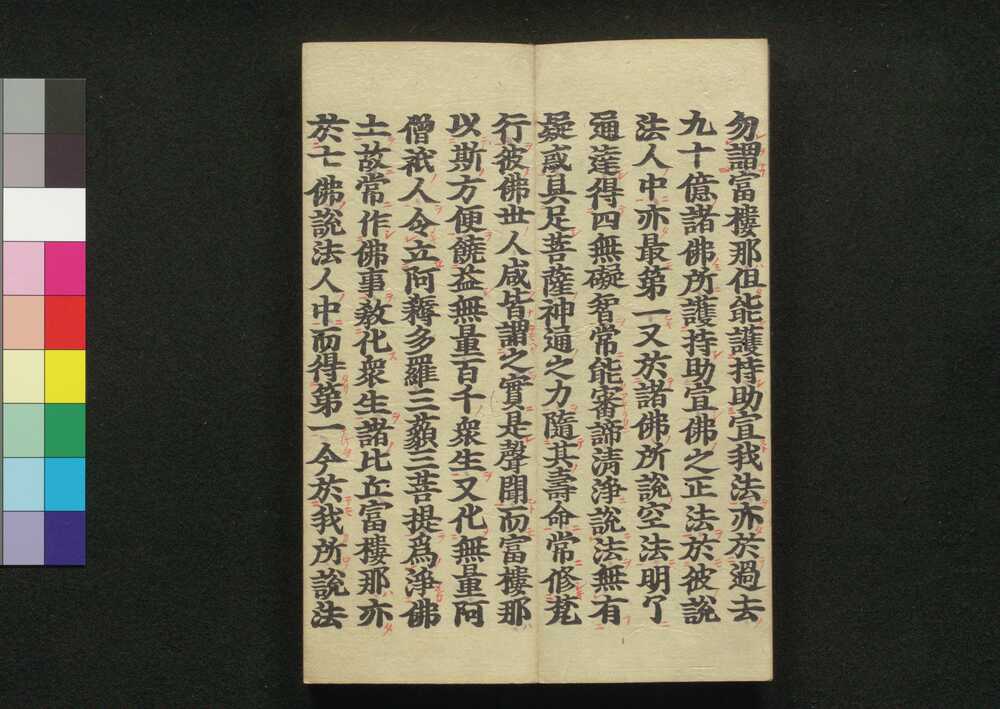 勿謂富樓那但能護持助宣我法亦於過去
九十億諸佛所護持助宣佛之正法於彼說
法人中亦最第一又於諸佛所說空法明了
通達得四無礙智常能審諦淸淨說法無有
疑惑具足菩薩神通之力隨其壽命常修梵
行彼佛世人咸皆謂之實是聲聞而富樓那
以斯方便饒益無量百千衆生又化無量阿
僧祇人令立阿耨多羅三藐三菩提爲淨佛
土故常作佛事敎化衆生諸比丘富樓那亦
於七佛說法人中而得第一今於我所說法